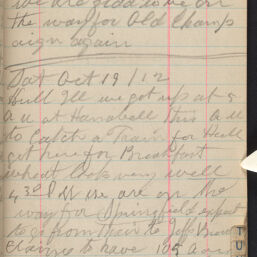 we are glad to be on
the way for Old Champ
aign again
Sat Oct 19/12
Hull Ill we got up at 5
A M at Hannibal this A M
to Catch a Train for Hull
got here for Breakfast
wheat looks very well
4,30 P M we are on the
way for Springfield expect
to go from their to
Claims to have 105 A
T
U